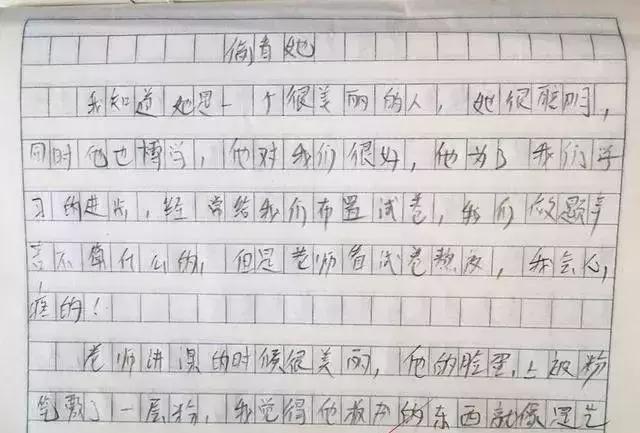 偷看她
我知道她是一个很美丽的人,她很聪明,
同时他也博学,他对我们很好,他为了我们学
习的进步,经常给我们布置试卷,我们做题辛
苦不算什么的,但是老师看试卷熬夜,我会心
疼的!
老师讲课的时候很美丽,他的脸蛋上被粉
笔敷了一层粉,我觉得他教的东西就像是艺